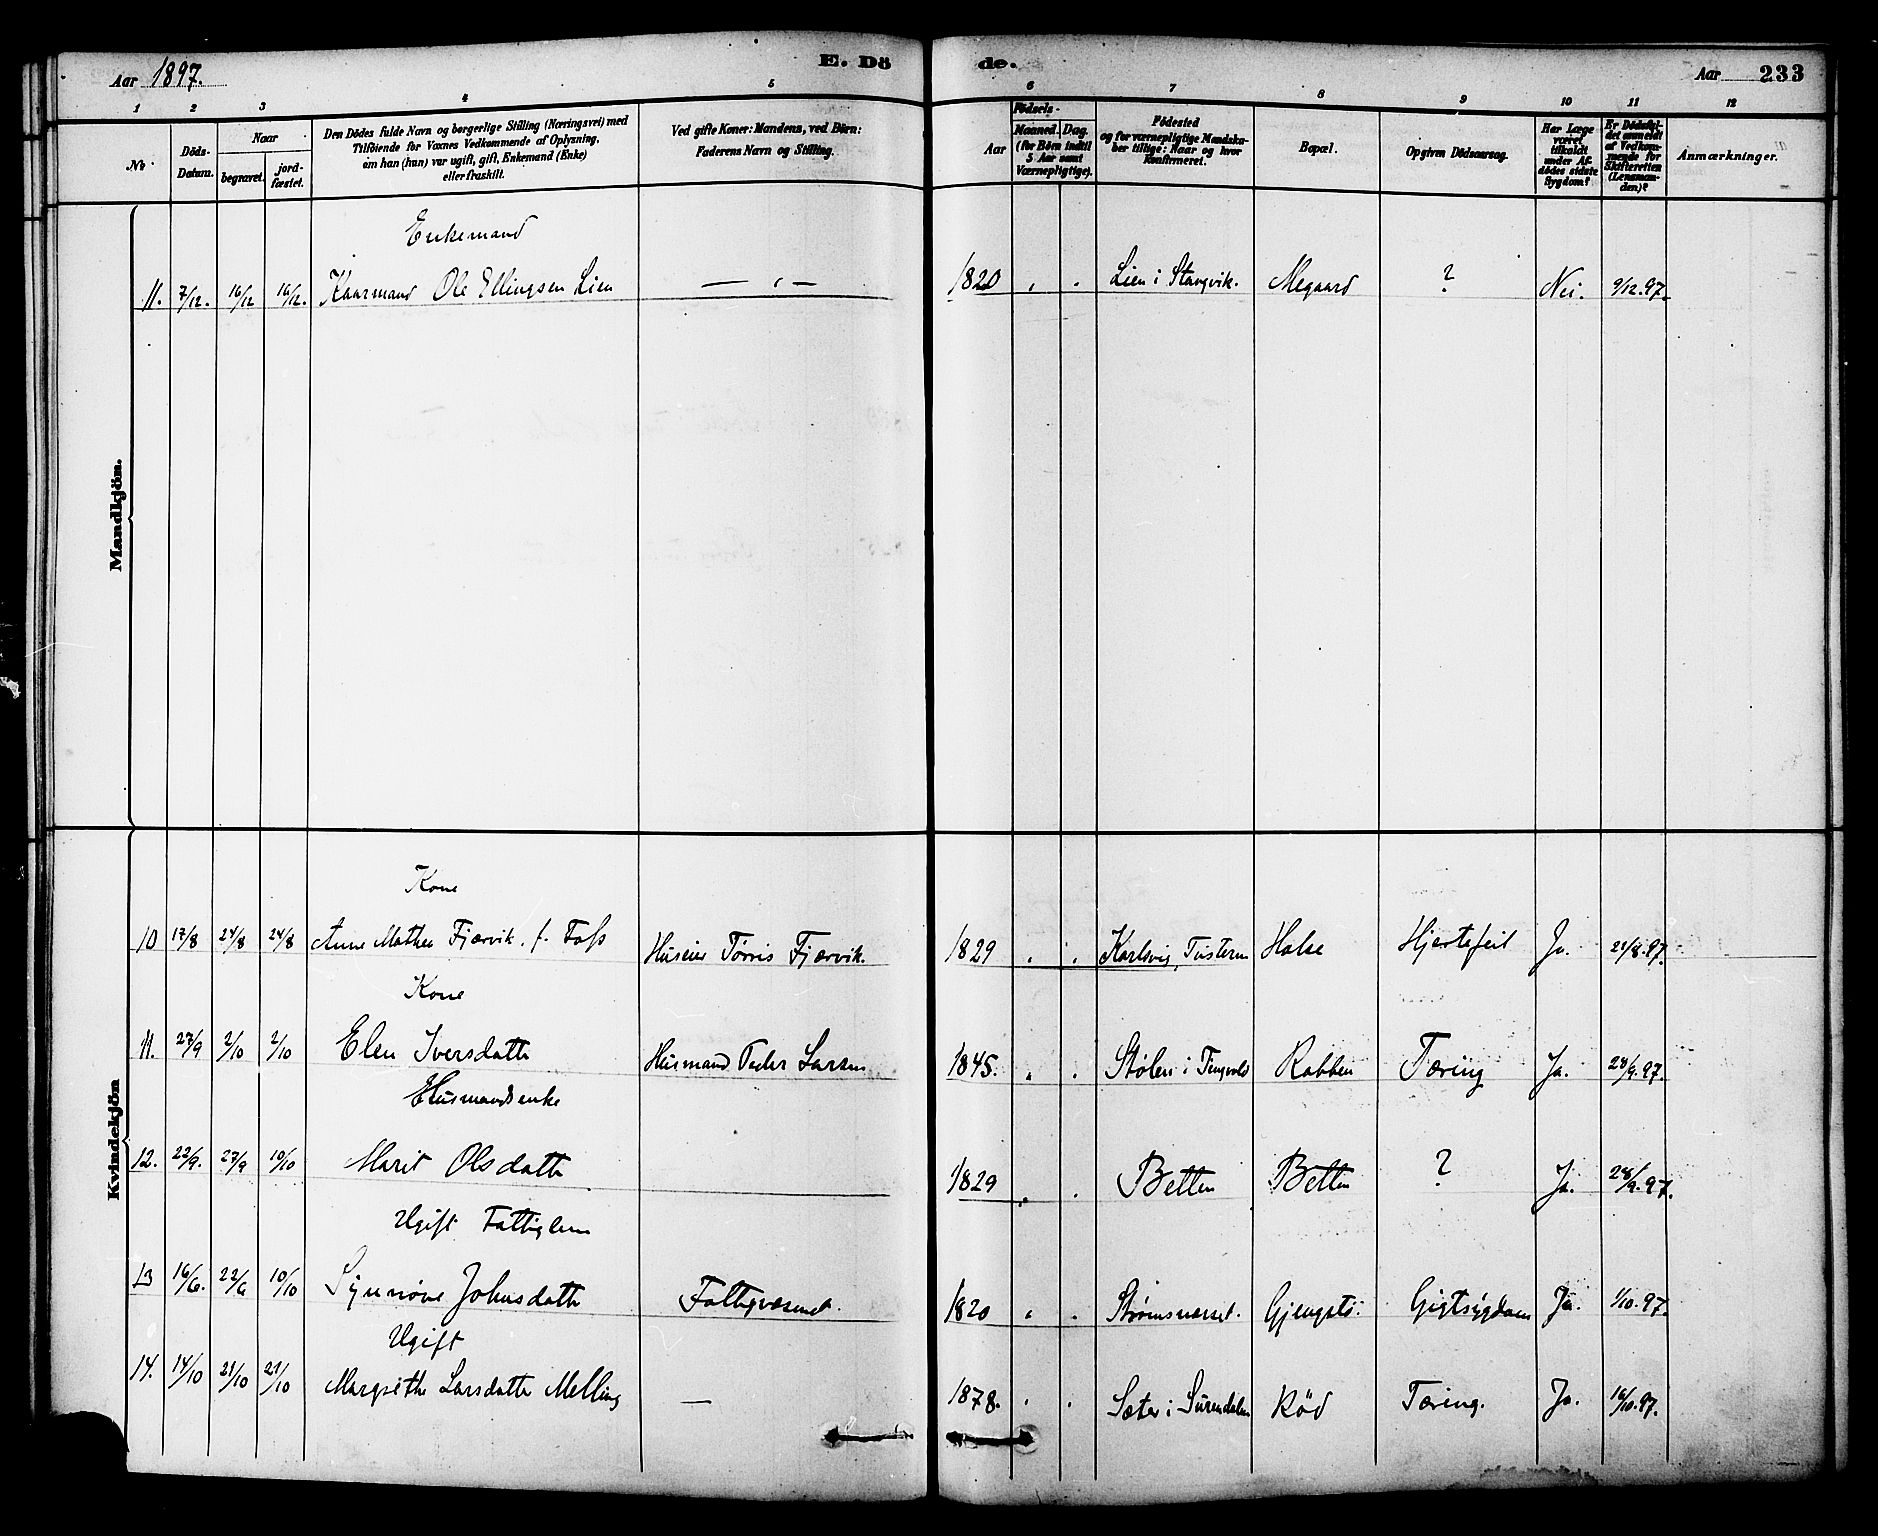 Aar 1897.
E. Dö
de.
Aar 233
1 2 3 4 5 6 7 8 9 10 11 12
No
Döds-Datum.
Naar
begravet.
jordfæstet.
Den Dödes fulde Navn og borgerlige Stilling (Næringsvei) med
Tilföiende for Voxnes Vedkommende af Oplysning,
om han (hun) var ugift, gift, Enkemand (Enke)
eller fraskilt.
Ved gifte Koner: Mandens, ved Börn:
Faderens Navn og Stilling.
Födsels-
Aar
Maaned. Dag.
(for Börn indtil
5 Aar samt
Værnepligtige).
Födested
og for værnepligtige Mandskaber tillige: Naar og hvor
Konfirmeret.
Bopæl.
Opgiven Dödsaarsag.
Har Læge
været
tilkaldt
under Afdödes sidste
Sygdom?
Er Dödsfaldet anmeldt
af Vedkommende for
Skifteretten
(Lensmanden)?
Anmærkninger.
Mandkjön.
Enkemand
11. 7/12. 16/12 16/12. Kaarmand Ole Ellingsen Lien — " — 1820 " . Lien i Stangvik. Megaard ? Nei. 9/12.97.
Kvindekjön
Kone
10 17/8 24/8 24/8 Anne Mathea Fjærvik. f. Foss Huseier Tørris Fjærvik. 1829 " . Karlsvig, Tustern Halse Hjertefeil Ja. 21/8.97.
Kone
11. 27/9 2/10 2/10 Elen Iversdatter Husmand Peder Larsen 1845. " . Stølen i Tingvold Rabben Tæring Ja. 28/9.97.
Husmandsenke
12. 22/9. 27/9 10/10 Marit Olsdatter 1829 " . Betten Betten ? Ja. 28/9.97.
Ugift Fattiglem
13 16/6. 22/6 10/10 Synnøve Johnsdatter Fattigvæsenet. 1820 " . Strømsnæsset. Gjengstø. Gigtsygdom Ja. 1/10.97.
Ugift
14. 14/10 21/10 21/10 Margrethe Larsdatter Melling — 1878. " . Sæter i Surendalen Rød Tæring. Ja. 16/10.97.